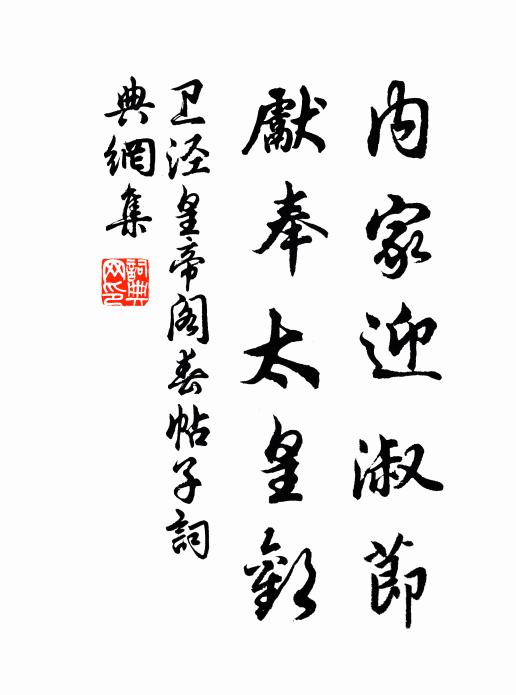 内家迎淑節
獻奉太皇歡
卫涇皇帝阁春帖子詞
典網集
詞典网印